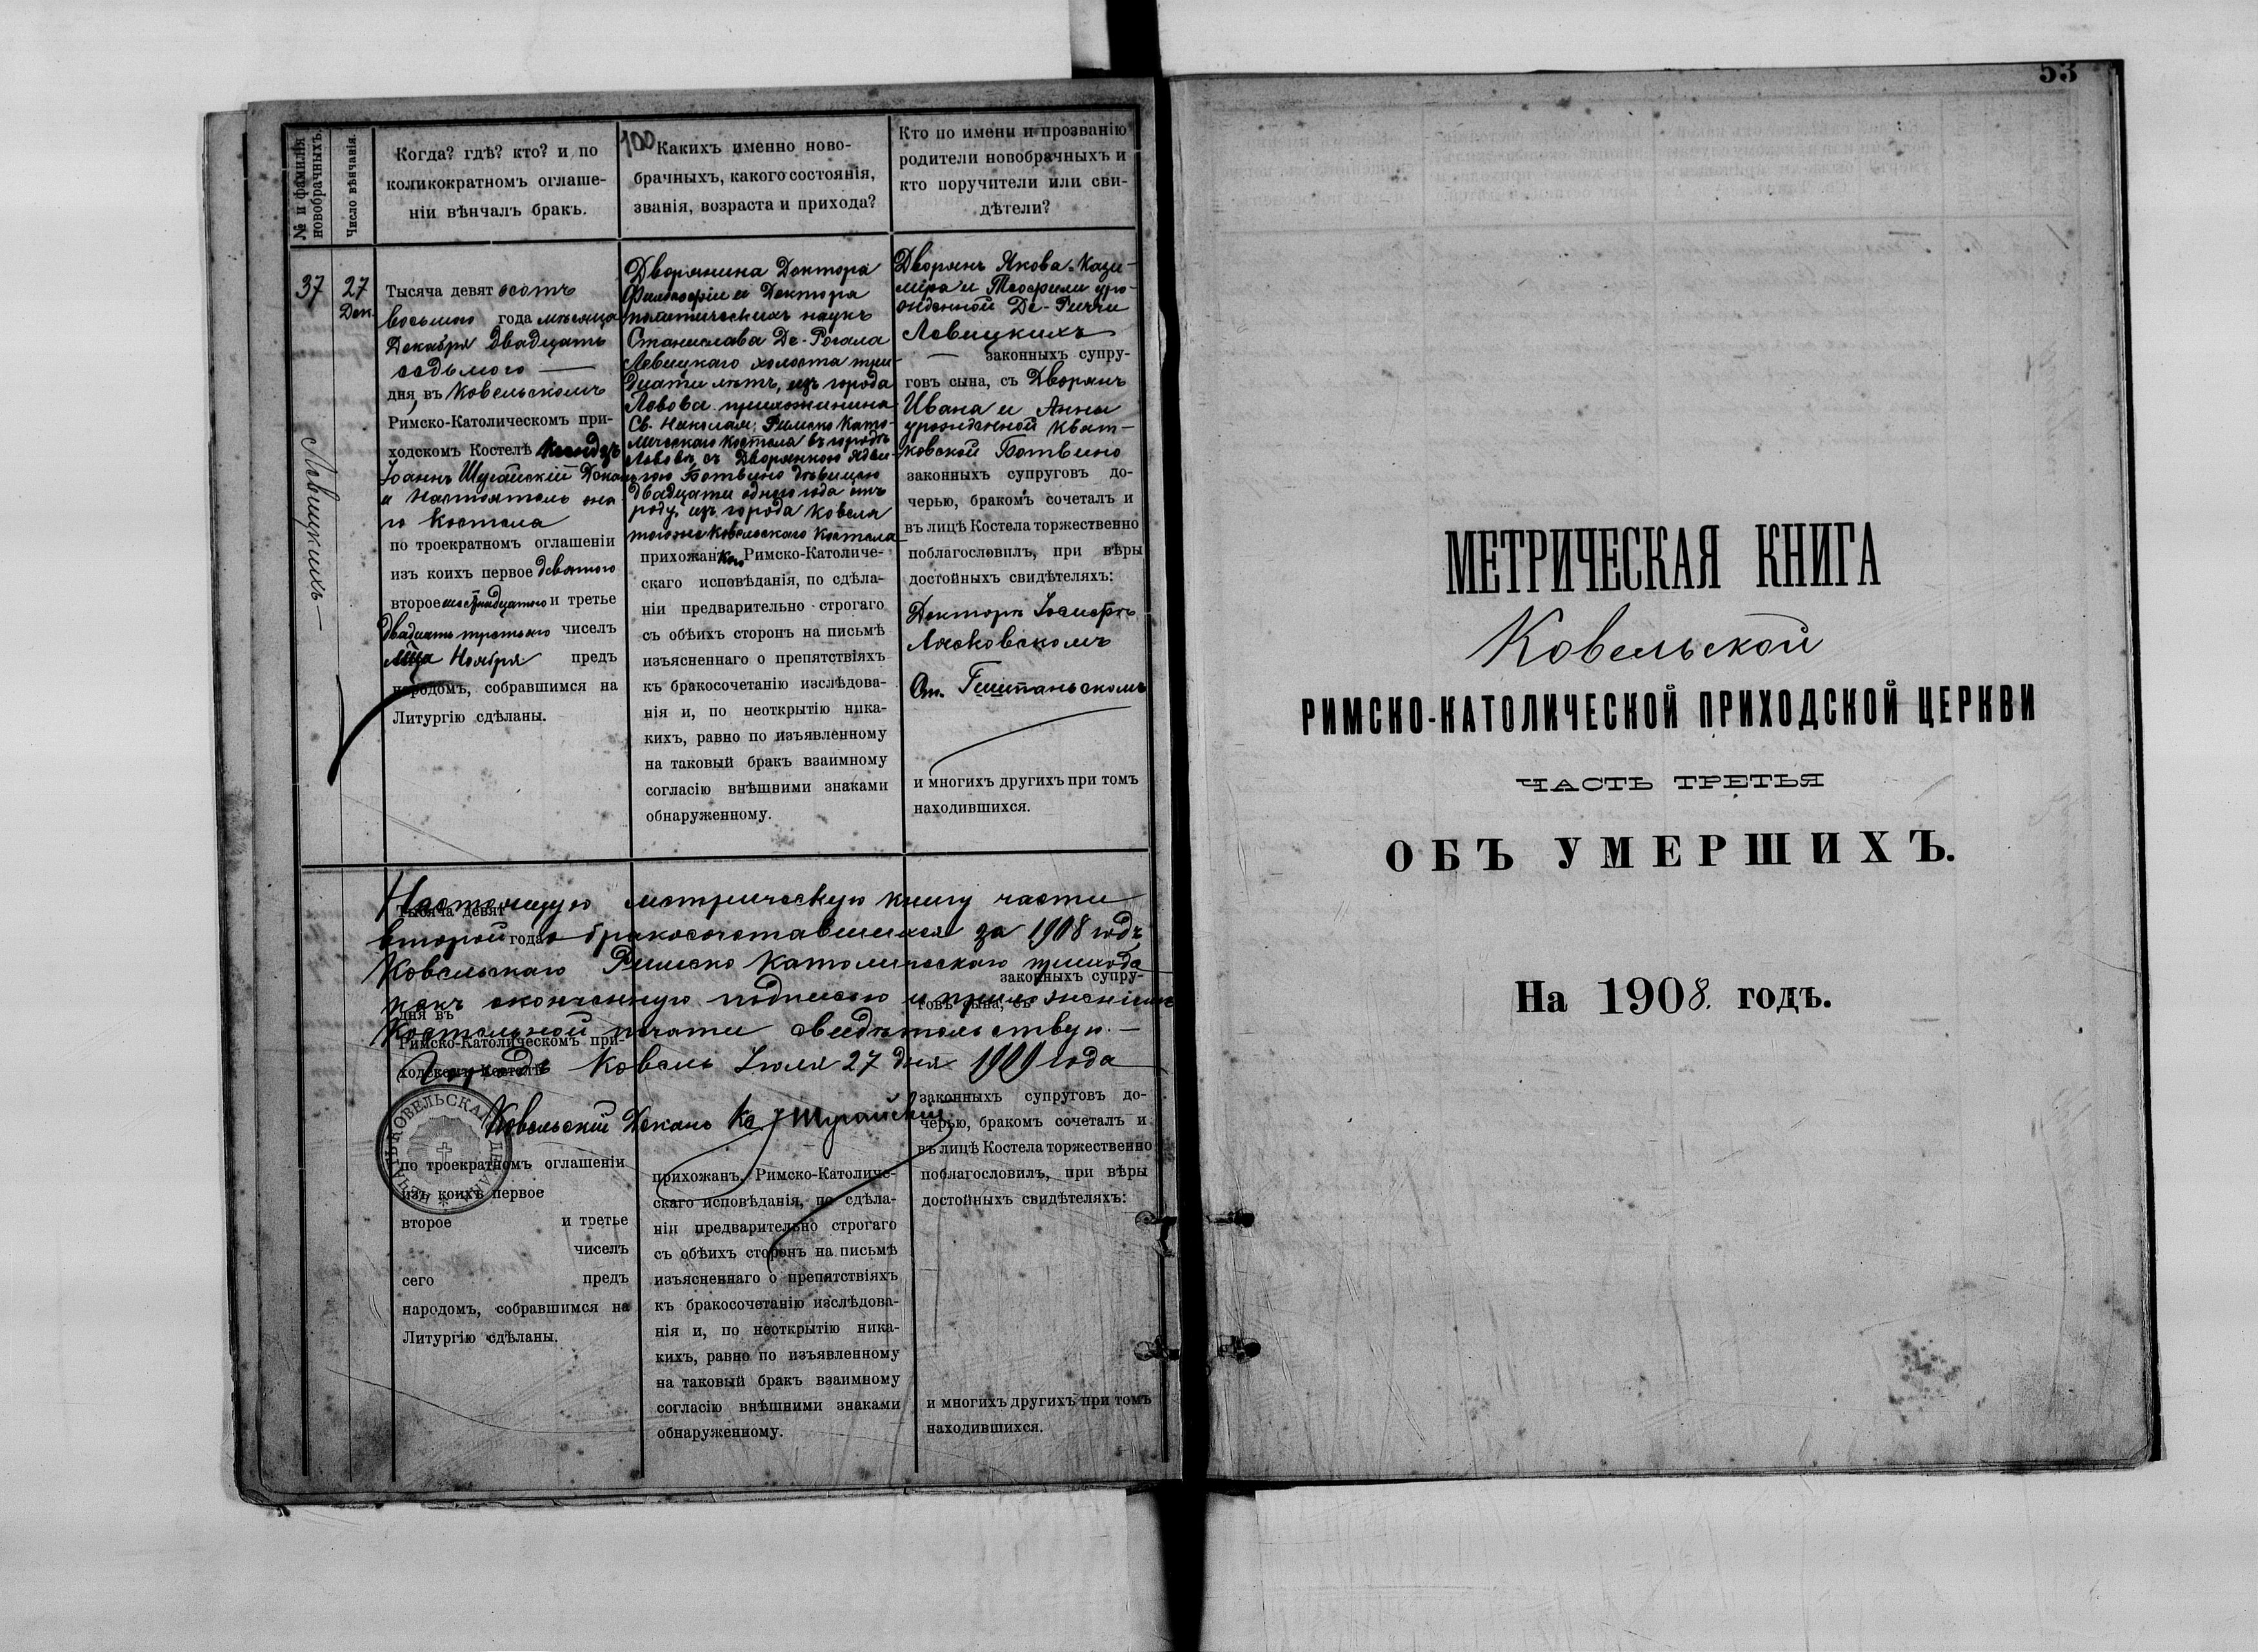 № и фамилія новобрачныхъ.
Число вѣнчанія.
Когда? гдѣ? кто? и по
коликократномъ оглаше-
ніи вѣнчалъ бракъ.
100
Какихъ именно ново-
брачныхъ, какого состоянія,
званія, возраста и прихода?
Кто по имени и прозванію
родители новобрачныхъ и
кто поручители или сви-
дѣтели?
37
Левицкихъ
27
Дек.
Тысяча девятьсотъ
восьмого года мѣсяца
Декабря двадцать
седьмого
дня, въ Ковельскомъ
Римско-Католическомъ при-
ходскомъ Костелѣ Ксендзъ
Іоаннъ Шугайскій Декан
и Настоятель она
го Костела
по троекратномъ оглашеніи
изъ коихъ первое девятого
второе шестнадцатого и третье
двадцать третьяго чиселъ
мца Ноября предъ
народомъ, собравшимся на
Литургію сдѣланы.
Дворянина Доктора
Философіи и Доктора
политическихъ наукъ
Станислава Де-Рогала
Левицкаго холоста три-
дцати лѣтъ, изъ города
Львова прихожанина
Св. Николая Римско Като-
лическаго Костела въ городѣ
Львовѣ, съ Дворянкою Ядви-
гою Ботвино дѣвицею
двадцати одного года отъ
роду, изъ города Ковеля
тогоже Ковельскаго Костела
прихожанкою Римско-Католиче-
скаго исповѣданія, по сдѣла-
ніи предварительно строгаго
съ обѣихъ сторонъ на письмѣ
изъясненнаго о препятствіяхъ
къ бракосочетанію изслѣдова-
нія и, по неоткрытію ника-
кихъ, равно по изъявленному
на таковый бракъ взаимному
согласію внѣшними знаками
обнаруженному.
Дворянъ Якова-Кази-
мира и Теофили уро-
жденной Де-Риччи
Левицкихъ
законныхъ супру-
говъ сына, съ Дворянъ
Ивана и Анны
урожденной Квят-
ковской Ботвино
законныхъ супруговъ до-
черью, бракомъ сочеталъ и
въ лицѣ Костела торжественно
поблагословилъ, при вѣры
достойныхъ свидѣтеляхъ:
Докторъ Іосифъ
Ляковскомъ
и многихъ другихъ при томъ
находившихся.
Настоящую метрическую книгу части
второй о бракосочетавшихся за 1908 годъ
Ковельскаго Римско Католическаго прихода
какъ оконченную подписью и приложеніемъ
Костельной печати свидѣтельствую.
Городъ Ковель Іюля 27 дня 1909 года
Ковельскій Деканъ Кс. І Шугайскій
Тысяча девят
года
дня въ
Римско-Католическомъ при-
ходскомъ Костелѣ
по троекратномъ оглашеніи
изъ коихъ первое
второе и третье
чиселъ
сего предъ
народомъ, собравшимся на
Литургію сдѣланы.
прихожанъ, Римско-Католиче-
скаго исповѣданія, по сдѣла-
ніи предварительно строгаго
съ обѣихъ сторонъ на письмѣ
изъясненнаго о препятствіяхъ
къ бракосочетанію изслѣдова-
нія и, по неоткрытію ника-
кихъ, равно по изъявленному
на таковый бракъ взаимному
согласію внѣшними знаками
обнаруженному.
законныхъ супру-
говъ сына, съ
законныхъ супруговъ до-
черью, бракомъ сочеталъ и
въ лицѣ Костела торжественно
поблагословилъ, при вѣры
достойныхъ свидѣтеляхъ:
и многихъ другихъ при томъ
находившихся.
53
МЕТРИЧЕСКАЯ КНИГА
Ковельской
РИМСКО-КАТОЛИЧЕСКОЙ ПРИХОДСКОЙ ЦЕРКВИ
ЧАСТЬ ТРЕТЬЯ
ОБЪ УМЕРШИХЪ.
На 1908. годъ.